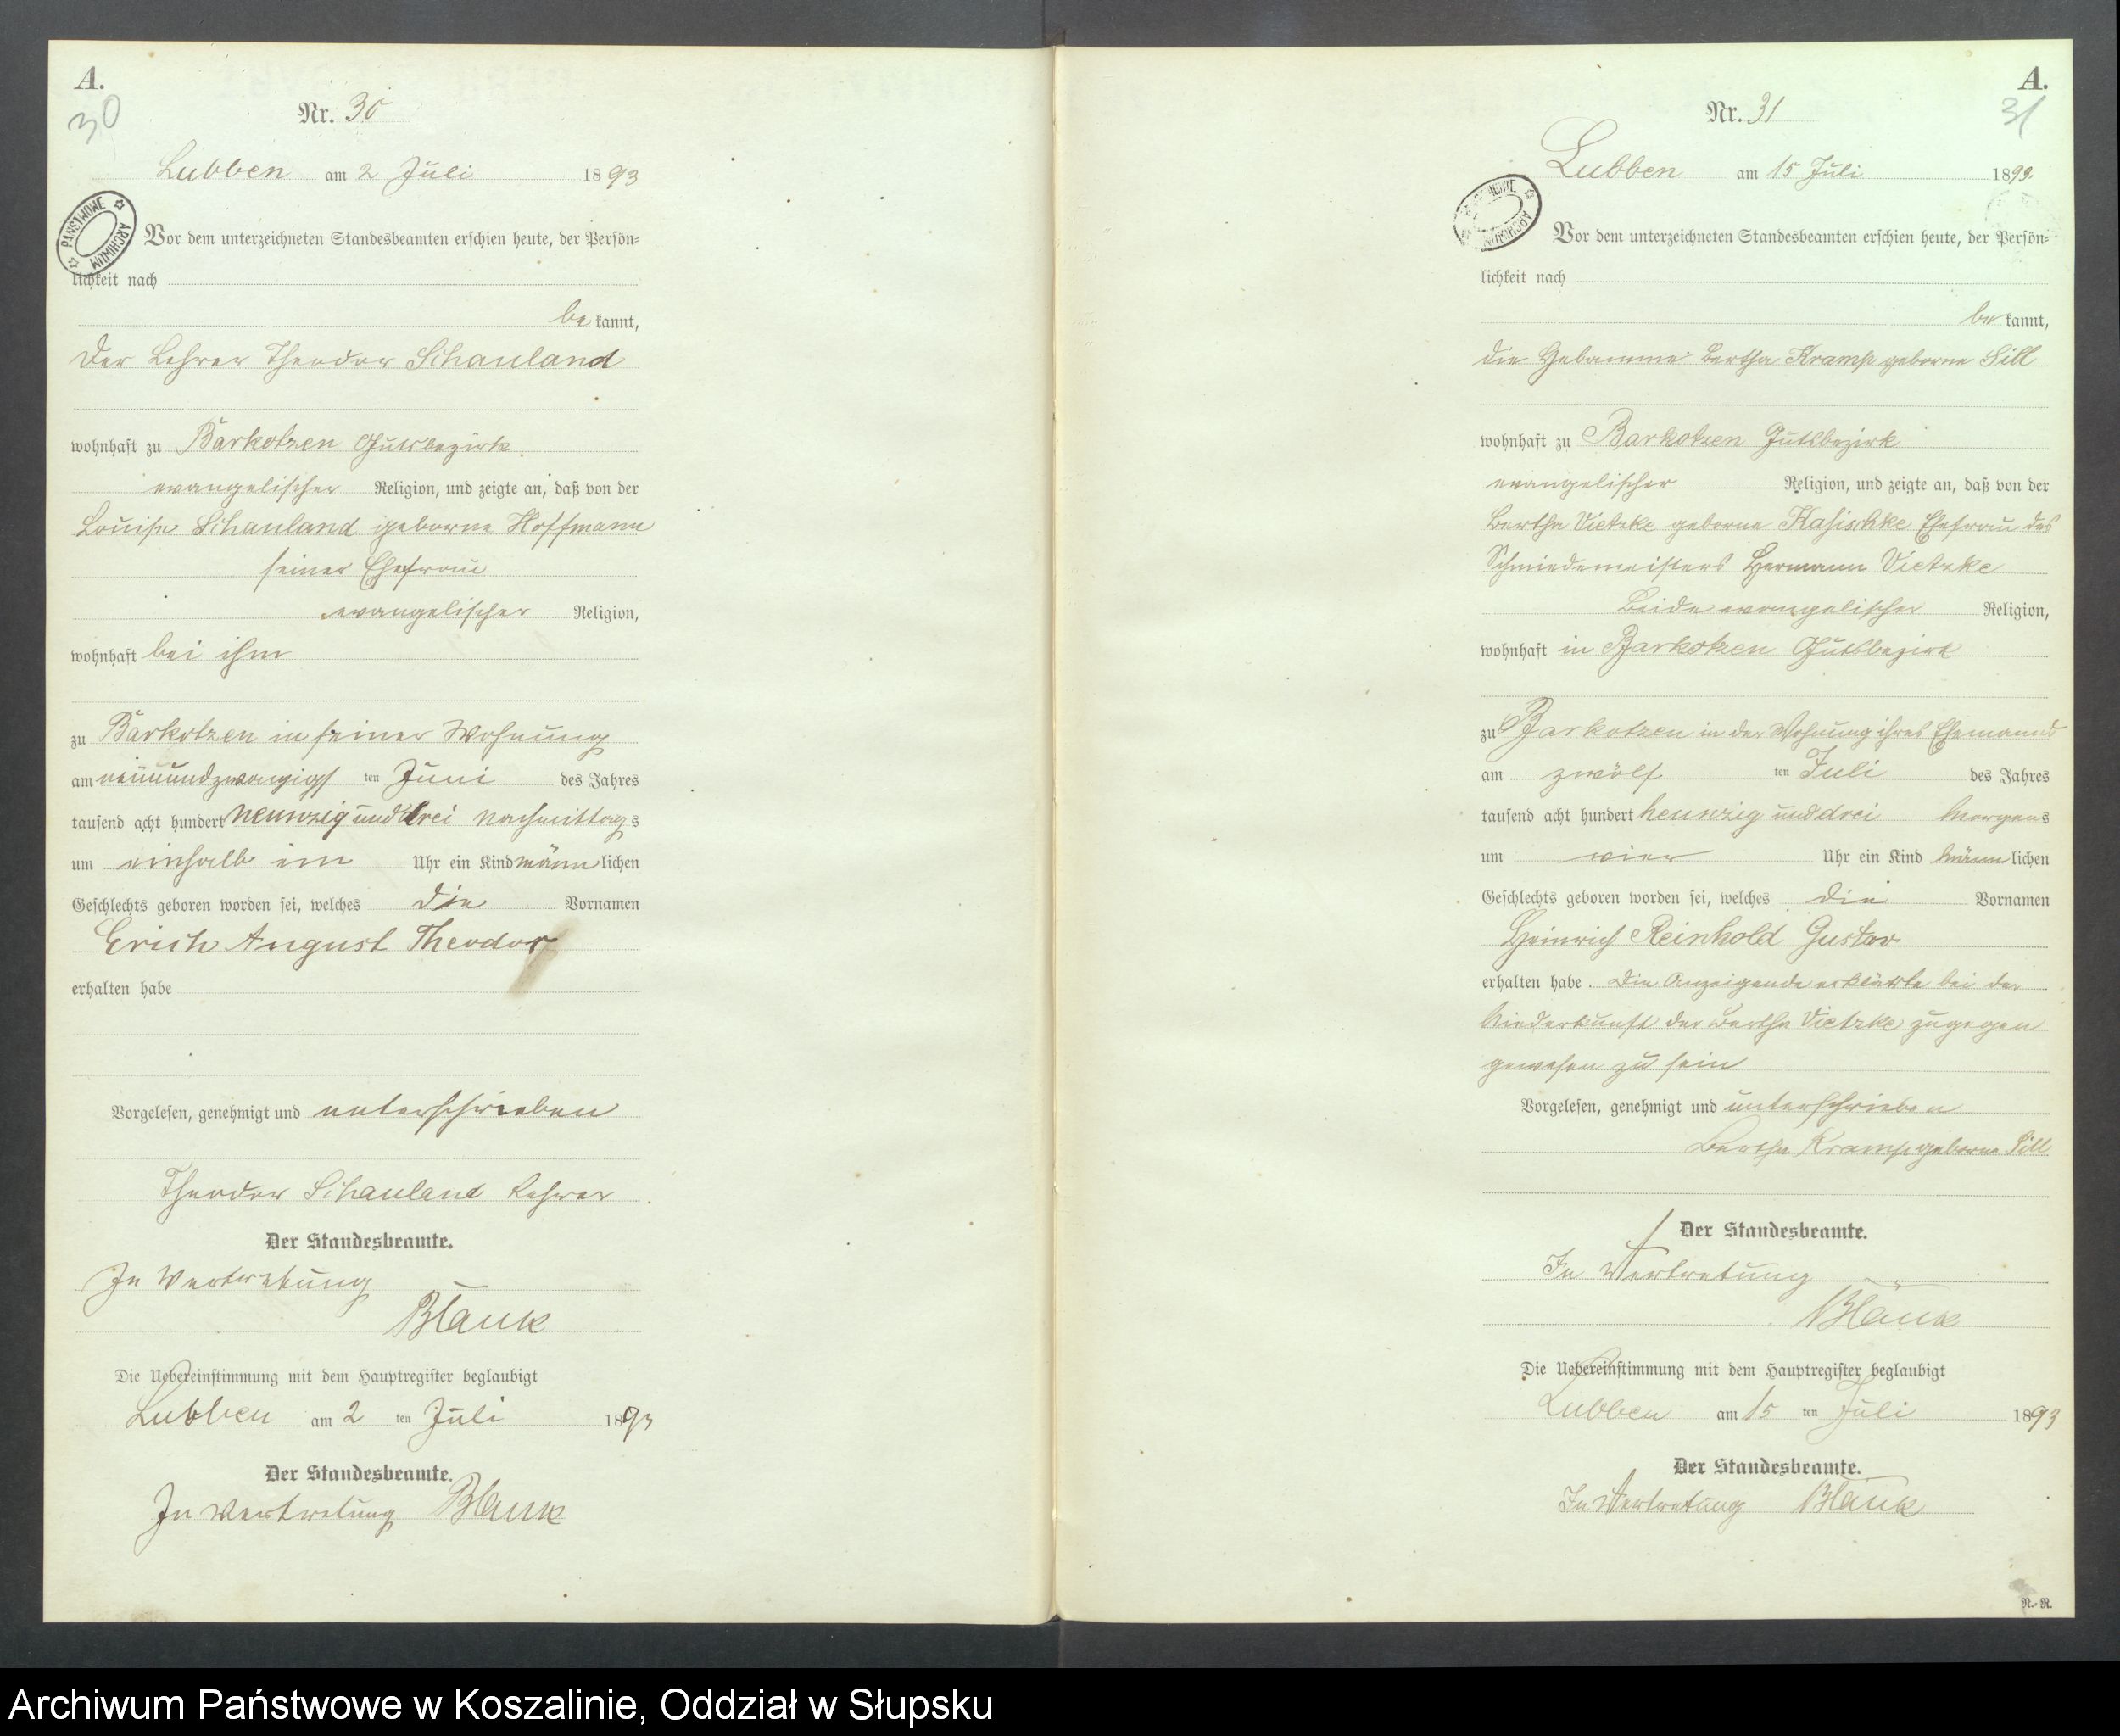 A.
30
Nr. 30
Lubben am 2 Juli 1893
PAŃSTWOWE ARCHIWUM
Vor dem unterzeichneten Standesbeamten erschien heute, der Persön=
lichkeit nach
be kannt,
Der Lehrer Theodor Schauland
wohnhaft zu Barkotzen Gutsbezirk.
evangelischer Religion, und zeigte an, daß von der
Louise Schauland geborne Hoffmann
seiner Ehefrau
evangelischer Religion,
wohnhaft bei ihm
zu Barkotzen in seiner Wohnung
am neunundzwanzigs ten Juni des Jahres
tausend acht hundert neunzig und drei nachmittags
um einhalb ein Uhr ein Kind männlichen
Geschlechts geboren worden sei, welches die Vornamen
Erich August Theodor
erhalten habe
Vorgelesen, genehmigt und unterschrieben
Theodor Schauland Lehrer
Der Standesbeamte.
In Vertretung
Blauk
Die Uebereinstimmung mit dem Hauptregister beglaubigt
Lubben am 2 ten Juli 1893
Der Standesbeamte.
In Vertretung Blauk
A.
31
Nr. 31
Lubben am 15 Juli 1893.
ARCHIWUM
Vor dem unterzeichneten Standesbeamten erschien heute, der Persön=
lichkeit nach
be kannt,
die Hebamme Bertha Kramp geborne Sill
wohnhaft zu Barkotzen Gutsbezirk
evangelischer Religion, und zeigte an, daß von der
Bertha Vietzke geborne Kasischke Ehefrau des
Schmiedemeisters Hermann Vietzke
beide evangelischer Religion,
wohnhaft in Barkotzen Gutsbezirk
zu Barkotzen in der Wohnung ihres Ehemanns
am zwölf ten Juli des Jahres
tausend acht hundert neunzig und drei Morgens
um vier Uhr ein Kind männlichen
Geschlechts geboren worden sei, welches die Vornamen
Heinrich Reinhold Gustav
erhalten habe. Die Anzeigende erklärte bei der
Niederkunft der Bertha Vietzke zugegen
gewesen zu sein
Vorgelesen, genehmigt und unterschrieben
Bertha Kramp geborne Sill
Der Standesbeamte.
In Vertretung
Blauk
Die Uebereinstimmung mit dem Hauptregister beglaubigt
Lubben am 15 ten Juli 1893
Der Standesbeamte.
In Vertretung Blauk
R.-R.
Archiwum Państwowe w Koszalinie, Oddział w Słupsku